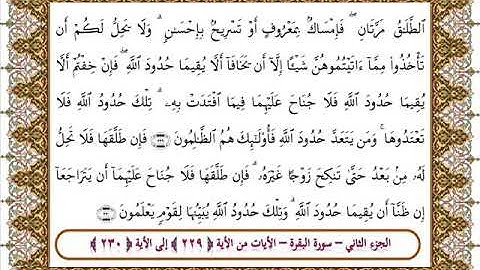 الطَّلَٰقُ مَرَّتَانِ ۖ فَإِمْسَاكٌۢ بِمَعْرُوفٍ أَوْ تَسْرِيحٌۢ بِإِحْسَٰنٍ ۗ وَلَا يَحِلُّ لَكُمْ أَن
تَأْخُذُوا۟ مِمَّآ ءَاتَيْتُمُوهُنَّ شَيْـًٔا إِلَّآ أَن يَخَافَآ أَلَّا يُقِيمَا حُدُودَ اللَّهِ ۖ فَإِنْ خِفْتُمْ أَلَّا
يُقِيمَا حُدُودَ اللَّهِ فَلَا جُنَاحَ عَلَيْهِمَا فِيمَا افْتَدَتْ بِهِۦ ۗ تِلْكَ حُدُودُ اللَّهِ فَلَا
تَعْتَدُوهَا ۚ وَمَن يَتَعَدَّ حُدُودَ اللَّهِ فَأُو۟لَٰٓئِكَ هُمُ الظَّٰلِمُونَ ﴿٢٢٩﴾ فَإِن طَلَّقَهَا فَلَا تَحِلُّ
لَهُۥ مِنۢ بَعْدُ حَتَّىٰ تَنكِحَ زَوْجًا غَيْرَهُۥ ۗ فَإِن طَلَّقَهَا فَلَا جُنَاحَ عَلَيْهِمَآ أَن يَتَرَاجَعَآ
إِن ظَنَّآ أَن يُقِيمَا حُدُودَ اللَّهِ ۗ وَتِلْكَ حُدُودُ اللَّهِ يُبَيِّنُهَا لِقَوْمٍ يَعْلَمُونَ ﴿٢٣٠﴾
الجزء الثاني – سورة البقرة – الآيات من الأية ﴿٢٢٩﴾ إلى الأية ﴿٢٣٠﴾